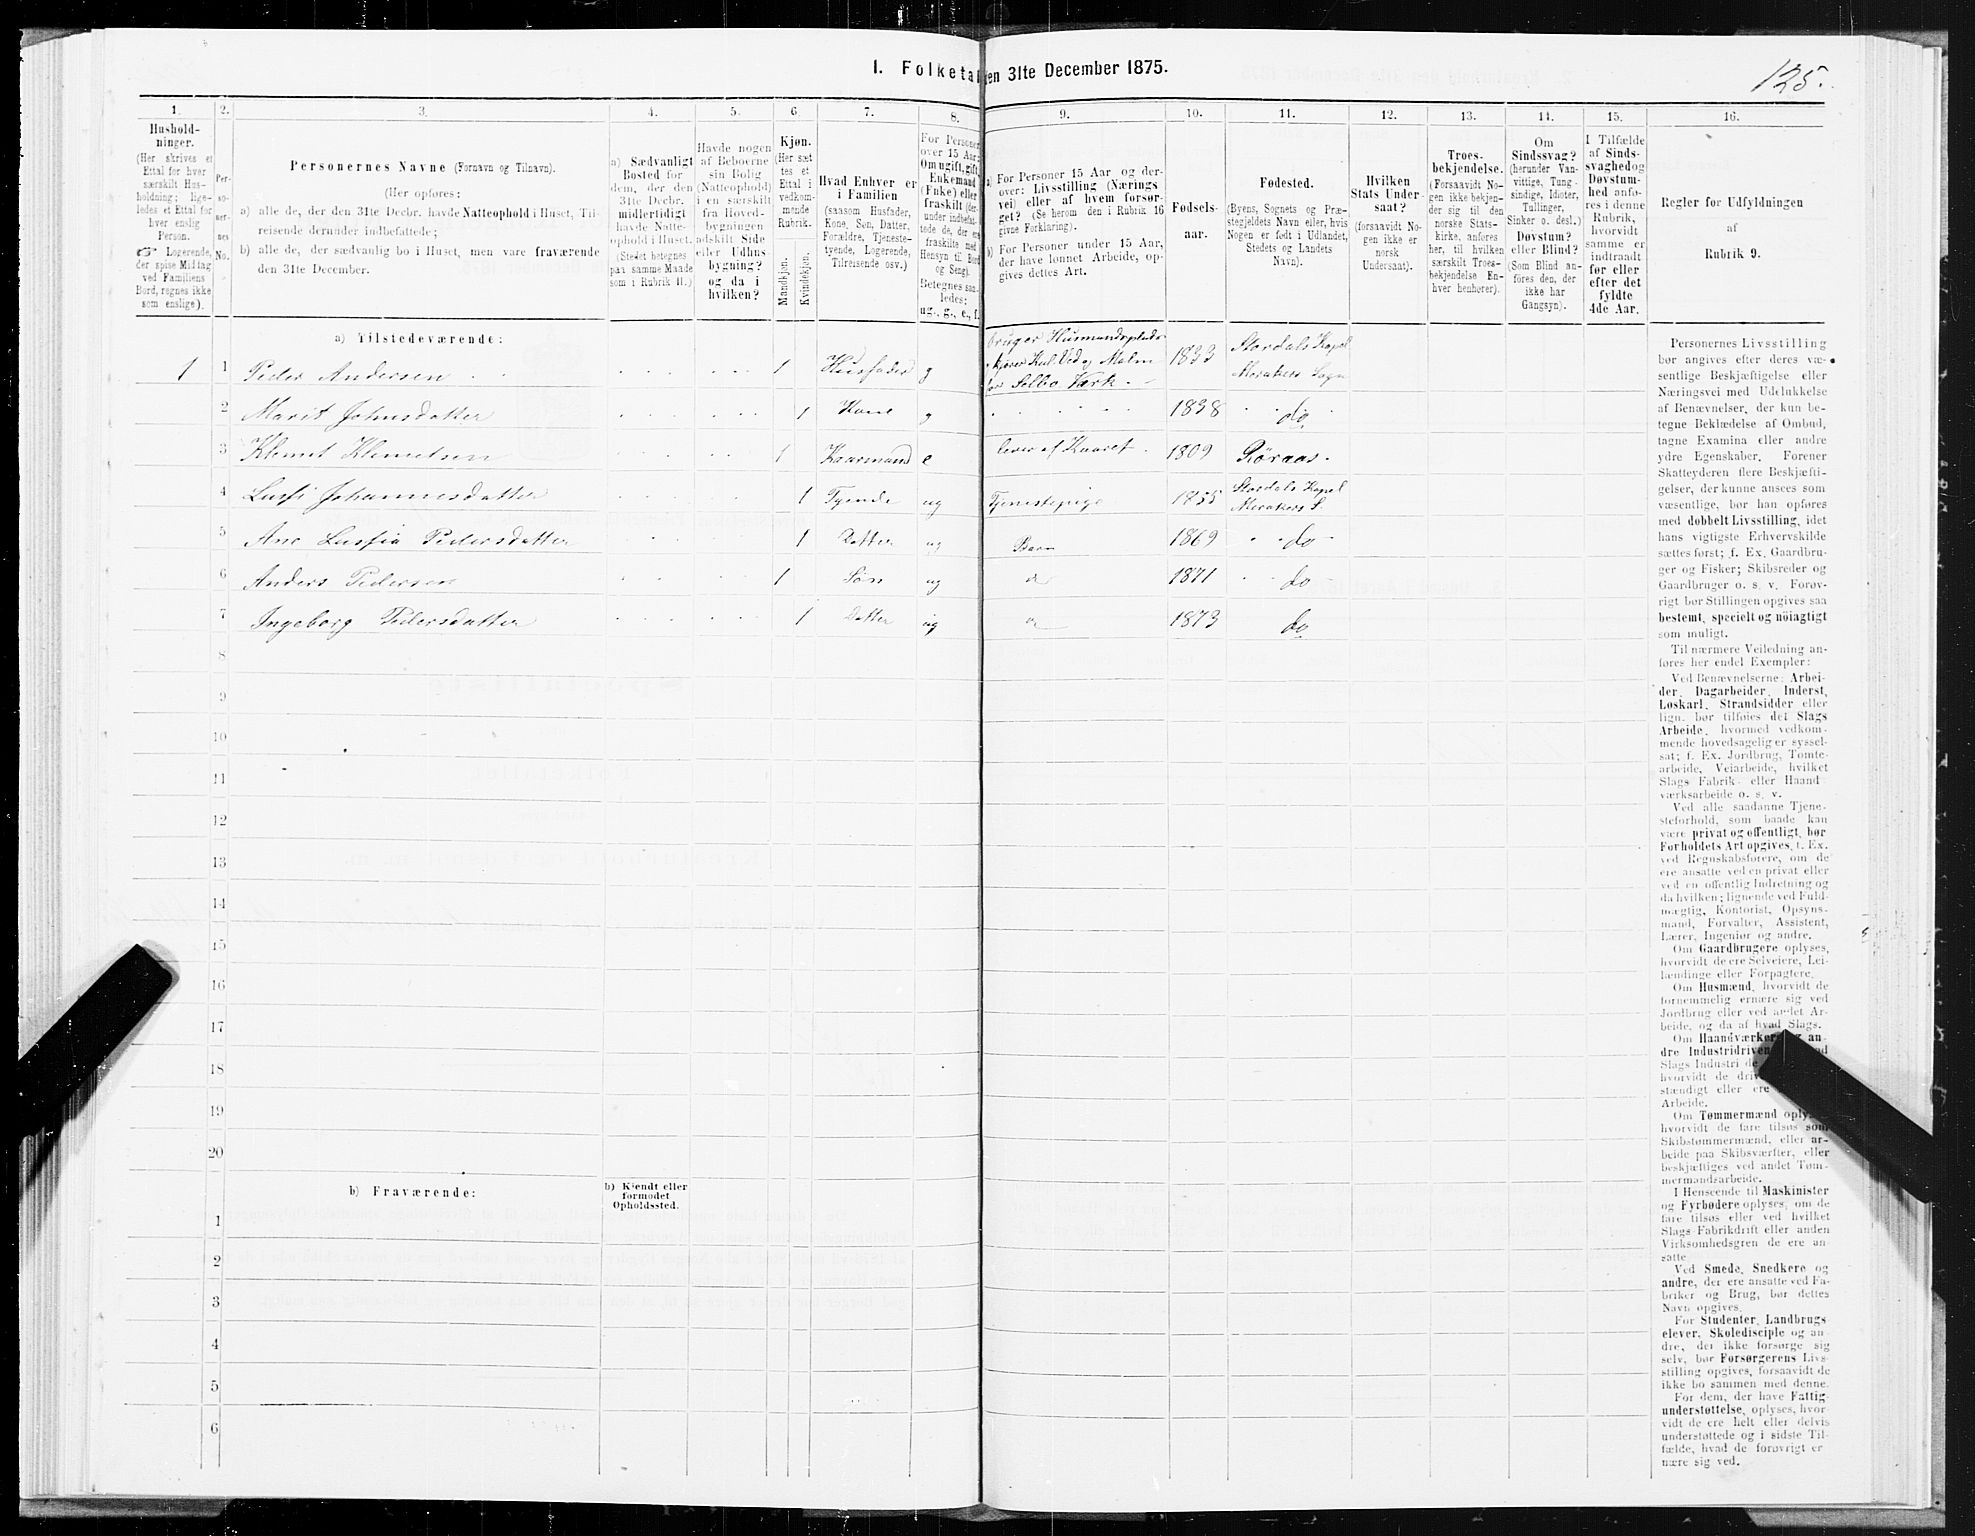 I. Folketal den 31te December 1875.
125.
1.
Hushold-
ninger.
(Her skrives et
Ettal for hver
særskilt Hus-
holdning; lige-
ledes et Ettal for
hver enslig
Person.
☞ Logerende,
der spise Middag
ved Familiens
Bord, regnes ikke
som enslige).
2.
Per-
so-
ner-
nes
No.
3.
Personernes Navne (Fornavn og Tilnavn).
(Her opføres:
a) alle de, der den 31te Decbr. havde Natteophold i Huset, Til-
reisende derunder indbefattede;
b) alle de, der sædvanlig bo i Huset, men vare fraværende
den 31te December.
4.
a) Sædvanligt
Bosted for
dem, der den
31te Decbr.
midlertidigt
havde Natte-
ophold i Huset.
(Stedet betegnes
paa samme Maade
som i Rubrik 11.)
5.
Havde nogen
af Beboerne
sin Bolig
(Natteophold)
i en særskilt
fra Hoved-
bygningen
adskilt Side
eller Udhus-
bygning?
og da i
hvilken?
6.
Kjøn.
(Her sæt-
tes et
Ettal i
vedkom-
mende
Rubrik.
Mandkjøn.
Kvindekjøn.
7.
Hvad Enhver er
i Familien
(saasom Husfader,
Kone, Søn, Datter,
Forældre, Tjeneste-
tyende, Logerende,
Tilreisende osv.)
8.
For Personer
over 15 Aar:
Om ugift, gift,
Enkemand
(Enke) eller
fraskilt (der-
under indbefat-
tede de, der ere
fraskilte med
Hensyn til Bord
og Seng).
Betegnes saa-
ledes:
ug., g., e., f.
9.
a) For Personer 15 Aar og der-
over: Livsstilling (Nærings-
vei) eller af hvem forsør-
get? (Se herom den i Rubrik 16
givne Forklaring).
b) For Personer under 15 Aar,
der have lønnet Arbeide, op-
gives dettes Art.
10.
Fødsels-
aar.
11.
Fødested.
(Byens, Sognets og Præ-
stegjeldets Navn eller, hvis
Nogen er født i Udlandet,
Stedets og Landets
Navn).
12.
Hvilken
Stats Under-
saat?
(forsaavidt No-
gen ikke er
norsk
Undersaat).
13.
Troes-
bekjendelse.
(Forsaavidt No-
gen ikke bekjen-
der sig til den
norske Stats-
kirke, anføres
her, til hvilken
særskilt Troes-
bekjendelse En-
hver henhører).
14.
Om
Sindssvag?
(herunder Van-
vittige, Tung-
sindige, Idioter,
Tullinger,
Sinker o. desl.)
Døvstum?
eller Blind?
(Som Blind an-
føres den, der
ikke har
Gangsyn).
15.
I Tilfælde
af Sinds-
svaghed og
Døvstum-
hed anfø-
res i denne
Rubrik,
hvorvidt
samme er
indtraadt
før eller
efter det
fyldte
4de Aar.
16.
Regler for Udfyldningen
af
Rubrik 9.
a) Tilstedeværende:
1 1 Peder Andersen 1 Husfader g bruger Husmandsplads
kjører Kul Ved og Malm
for Selbo Værk. 1833 Stordals Kapel
Merakers Sogn
2 Marit Johnsdatter 1 Kone g 1838 do
3 Klemet Klemetsen 1 Kaarmand e lever af Kaaret 1809 Röraas.
4 Johannesdatter 1 Tyende ug Tjenestepige 1855 Stordals Kapel
Merakers S.
5 Ane Pedersdatter 1 Datter ug Barn 1869 do
6 Anders Pedersen 1 Søn ug 1871 do
7 Ingeborg Pedersdatter 1 Datter ug 1873 do
8
9
10
11
12
13
14
15
16
17
18
19
20
b) Fraværende:
b) Kjendt eller
formodet
Opholdssted.
1
2
3
4
5
6
Personernes Livsstilling
bør angives efter deres væ-
sentlige Beskjæftigelse eller
Næringsvei med Udelukkelse
af Benævnelser, der kun be-
tegne Beklædelse af Ombud,
tagne Examina eller andre
ydre Egenskaber. Forener
Skatteyderen flere Beskjæfti-
gelser, der kunne ansees som
væsentlige, bør han opføres
med dobbelt Livsstilling, idet
hans vigtigste Erhvervskilde
sættes først; f. Ex. Gaardbru-
ger og Fisker; Skibsreder og
Gaardbruger o. s. v. Forøv-
rigt bør Stillingen opgives saa
bestemt, specielt og nöiagtigt
som muligt.
Til nærmere Veiledning an-
føres her endel Exempler:
Ved Benævnelserne: Arbei-
der, Dagarbeider, Inderst,
Løskarl, Strandsidder eller
lign. bør tilføies det Slags
Arbeide, hvormed vedkom-
mende hovedsagelig er syssel-
sat; f. Ex. Jordbrug, Tomte-
arbeide, Veiarbeide, hvilket
Slags Fabrik- eller Haand-
værksarbeide o. s. v.
Ved alle saadanne Tjene-
steforhold, som baade kan
være privat og offentligt, bør
Forholdets Art opgives, f. Ex.
ved Regnskabsførere, om de
ere ansatte ved en privat eller
ved en offentlig Indretning og
da hvilken; lignende ved Fuld-
mægtig, Kontorist, Opsyns-
mand, Forvalter, Assistent,
Lærer, Ingeniør og andre.
Om Gaardbrugere oplyses,
hvorvidt de ere Selveiere, Lei-
lændinge eller Forpagtere.
Om Husmænd, hvorvidt de
fornemmelig ernære sig ved
Jordbrug eller ved andet Ar-
beide, og da af hvad Slags.
Om Haandværkere og an-
dre Industridriven
Slags Industri de
hvorvidt de
stændigt eller ere
Arbeide.
Om Tømmermænd oplyses,
hvorvidt de fare tilsøs som
Skibstømmermænd, eller ar-
beide paa Skibsværfter, eller
beskjæftiges ved andet Tøm-
mermandsarbeide.
I Henseende til Maskinister
og Fyrbødere oplyses, om de
fare tilsøs eller ved hvilket
Slags Fabrikdrift eller anden
Virksomhedsgren de ere an-
satte
Ved Smede, Snedkere og
andre, der ere ansatte ved Fa-
briker og Brug, bør dettes
Navn opgives.
For Studenter, Landbrugs-
elever, Skoledisciple og an-
dre, der ikke forsørge sig
selv, bør Forsørgerens Livs-
stilling opgives, forsaavidt de
ikke bo sammen med denne.
For dem, der have Fattig-
understøttelse, oplyses, hvor-
vidt de ere helt eller delvis
understøttede og i sidste Til-
fælde, hvad de forøvrigt er-
nære sig ved.